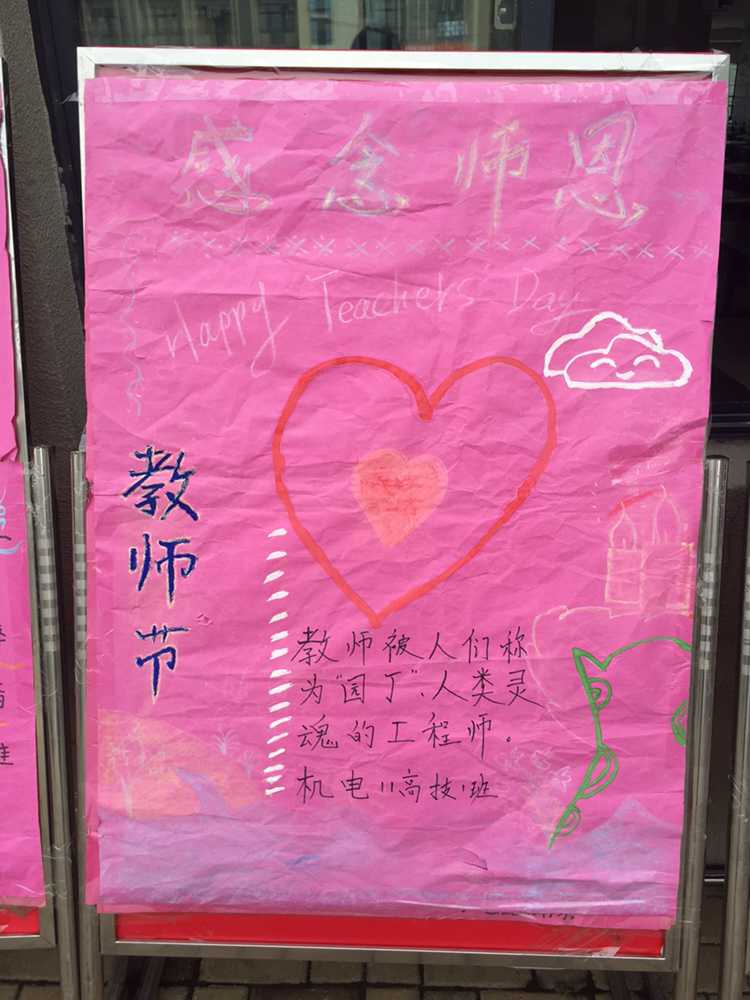 感念师恩
Happy Teachers' Day
教师节
教师被人们称
为"园丁"、人类灵
魂的工程师。
机电11高技1班